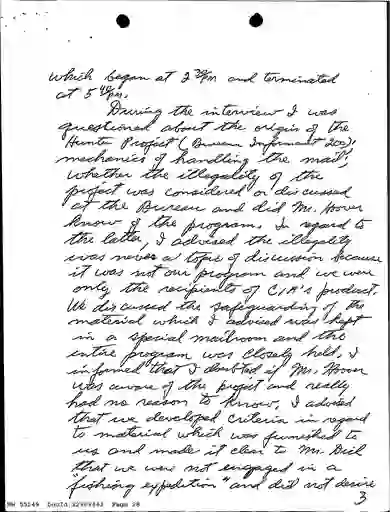 which began at 2 30 pm and terminated
at 5 40 pm.
During the interview I was
questioned about the origin of the
Hunter Project (Bureau Informant 200),
mechanics of handling the mail,
whether the illegality of the
project was considered or discussed
at the Bureau and did Mr. Hoover
know of the program. In regard to
the latter, I advised the illegality
was never a topic of discussion because
it was not our program and we were
only the recipients of CIA's product.
We discussed the safeguarding of the
material which I advised was kept
in a special mailroom and the
entire program was closely held. I
informed that I doubted if Mr. Hoover
was aware of the project and really
had no reason to know. I advised
that we developed criteria in regard
to material which was furnished to
us and made it clear to Mr.
that we were not engaged in a
"fishing expedition" and did not desire
3
NW 55149 Page 28